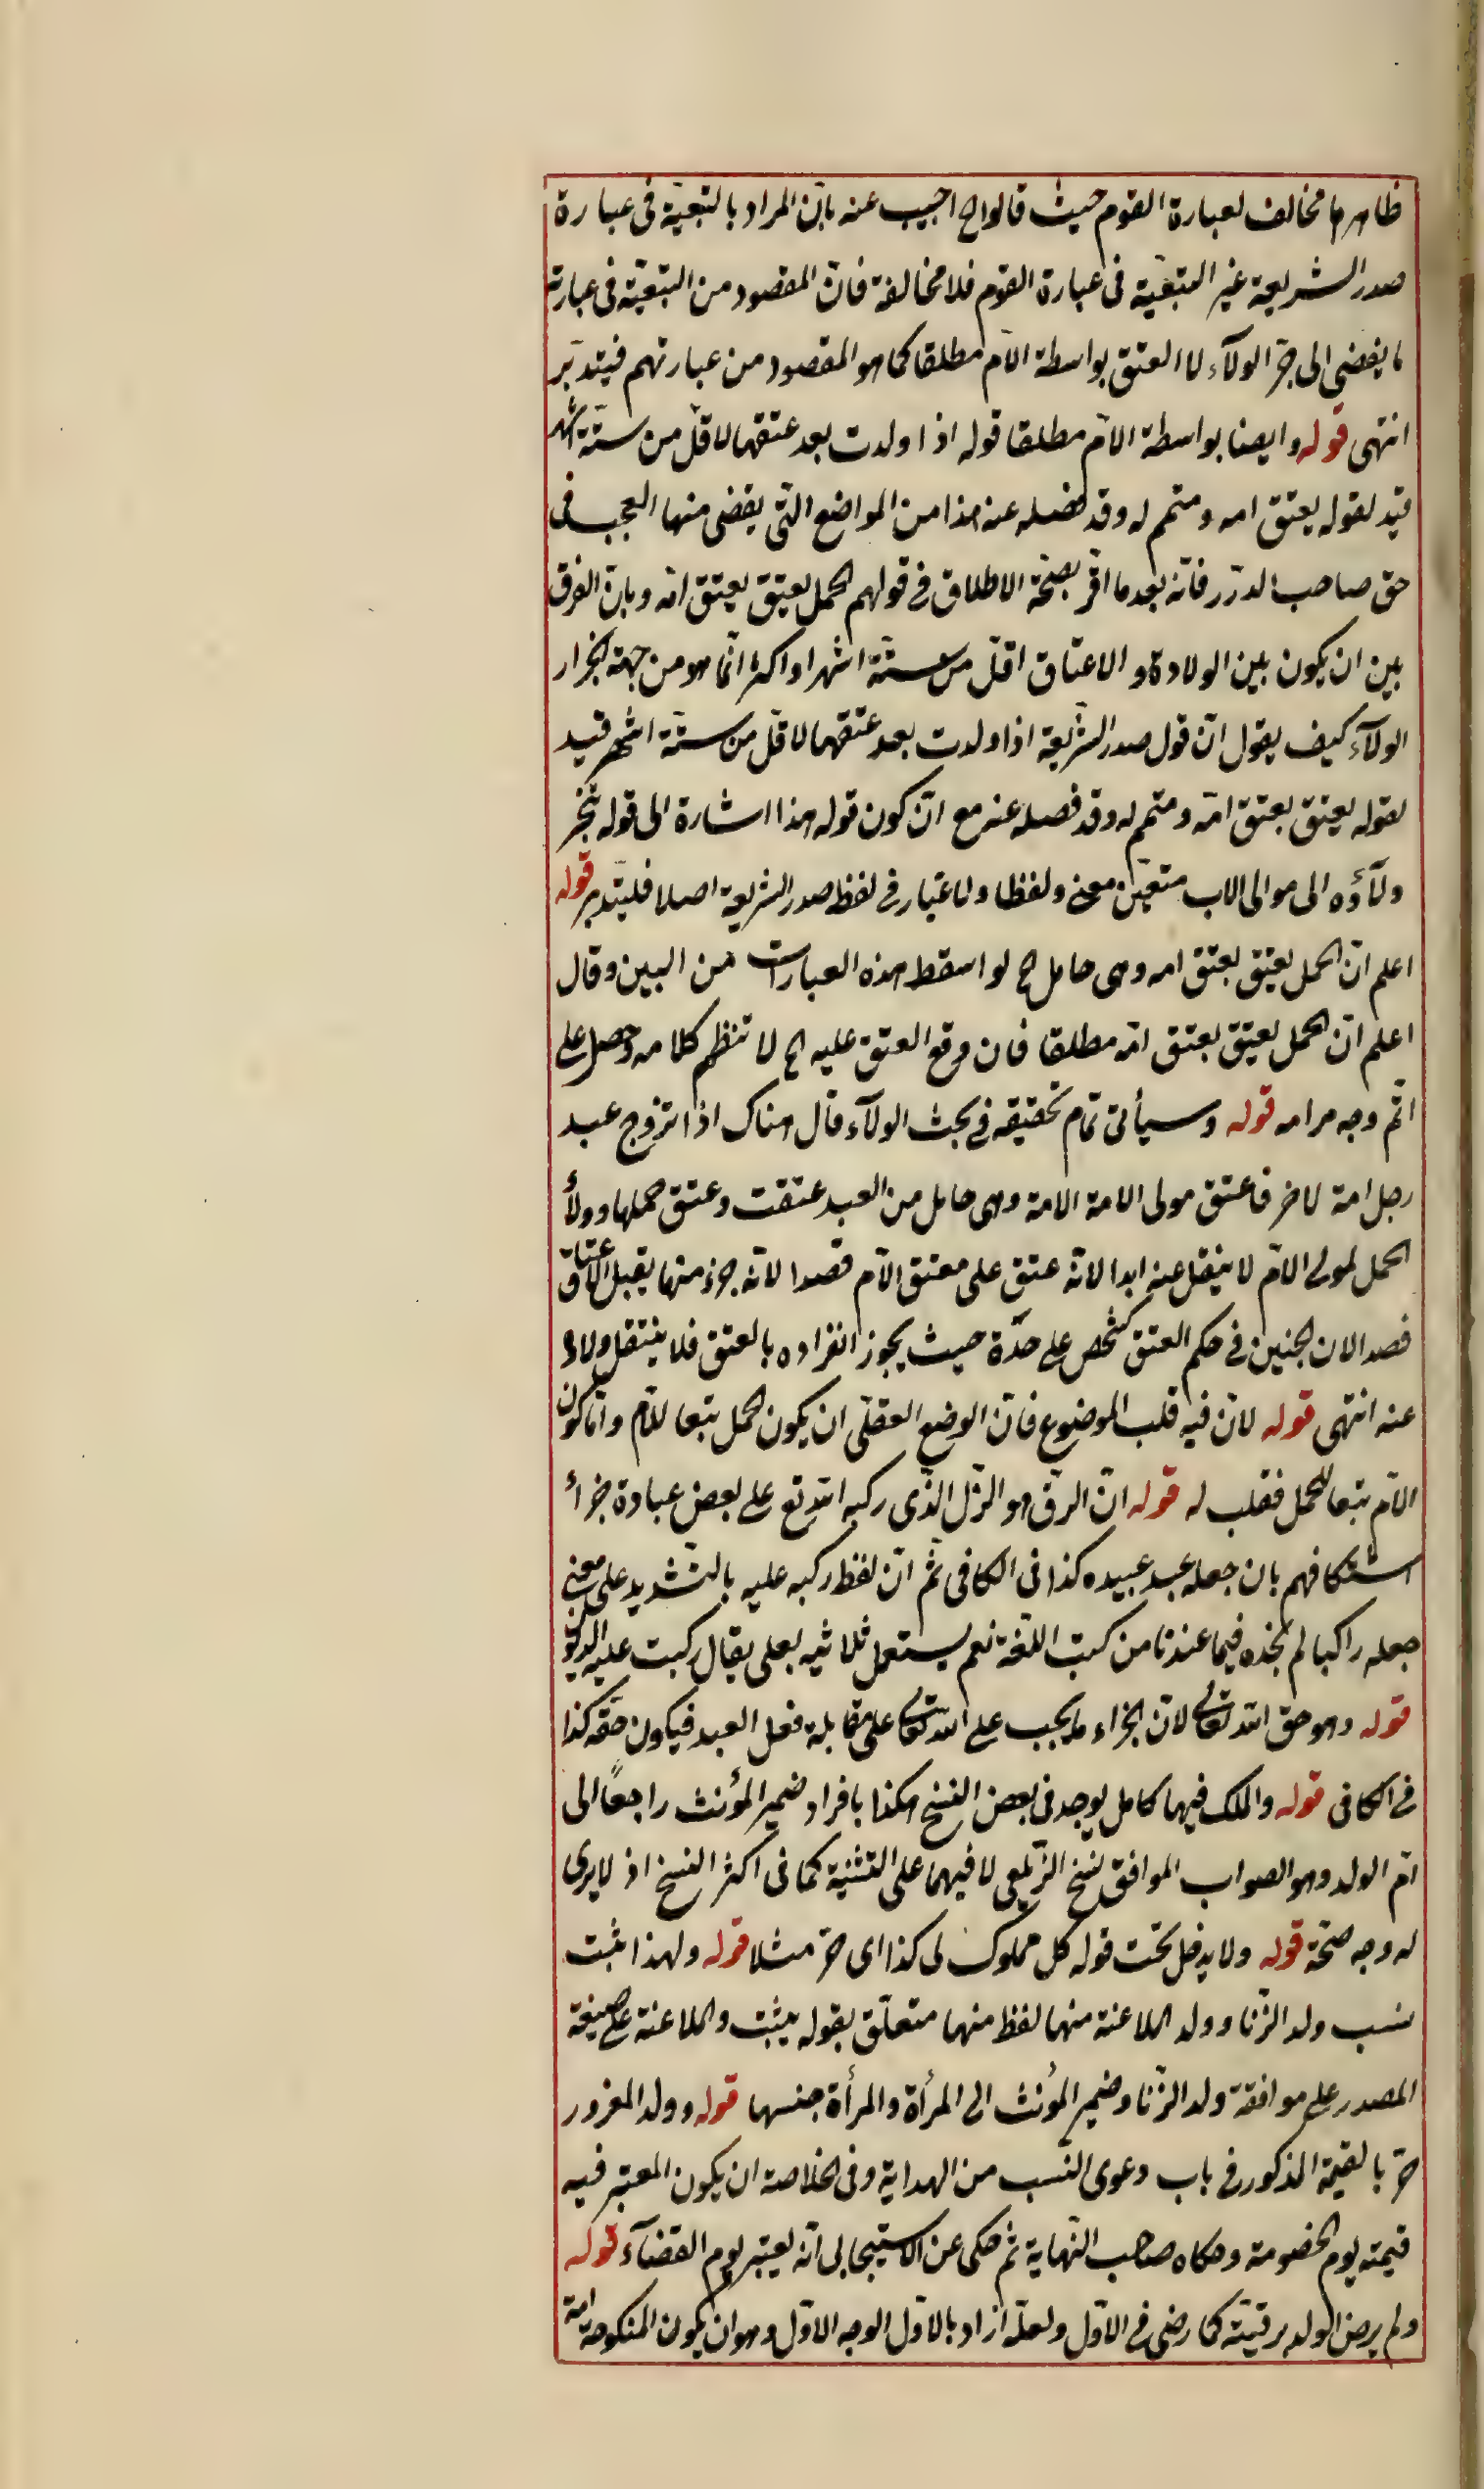 ظاهرها مخالف لعبارة القوم حيث قالوا الخ اجيب عنه بان المراد بالتبعية فى عبارة
صدر الشريعة غير التبعية فى عبارة القوم فلا مخالفة فان المقصود من التبعية فى عبارته
ما يفضى الى جر الولاء لا العتق بواسطة الام مطلقا كما هو المقصود من عبارتهم فيتدبر
انتهى قوله وايضا بواسطة الام مطلقا قوله اذا ولدت بعد عتقها لاقل من ستة اشهر
قيد لقوله يعتق امه ومتمم له وقد فصله عنه هذا من المواضع التى يقضى منها العجب فى
حق صاحب الدرر فانه بعد ما اقر بصحة الاطلاق فى قولهم الحمل يعتق بعتق امه وبان الفرق
بين ان يكون بين الولادة والاعتاق اقل من ستة اشهر او اكثر انما هو من جهة انجرار
الولاء كيف يقول ان قول صدر الشريعة اذا ولدت بعد عتقها لاقل من ستة اشهر قيد
لقوله يعتق بعتق امه ومتمم له وقد فصله عنه مع ان كون قوله هذا اشارة الى قوله ينجر
ولاؤه الى موالى الاب متعين معنى ولفظا ولا غبار فى لفظ صدر الشريعة اصلا فليتدبر قوله
اعلم ان الحمل يعتق بعتق امه وهى حامل الخ لو اسقط هذه العبارات من البين وقال
اعلم ان الحمل يعتق بعتق امه مطلقا فان وقع العتق عليه الخ لا تنظم كلامه وحصل على
اتم وجه مرامه قوله وسيأتى تمام تحقيقه فى بحث الولاء قال هناك اذا تزوج عبد
رجل امة لاخر فاعتق مولى الامة الامة وهى حامل من العبد عتقت وعتق حملها وولاء
الحمل لمولى الام لا ينتقل عنه ابدا لانه عتق على معتق الام قصدا لانه جزء منها يقبل الاعتاق
قصدا لان الجنين فى حكم العتق كشخص على حدة حيث يجوز انفراده بالعتق فلا ينتقل ولاؤه
عنه انتهى قوله لان فيه قلب الموضوع فان الوضع العقلى ان يكون الحمل تبعا للام واما كون
الام تبعا للحمل فقلب له قوله ان الرق هو الذل الذى ركبه الله تع على بعض عباده جزاء
استنكافهم بان جعله عبد عبيده كذا فى الكافى ثم ان لفظ ركبه عليه بالتشديد على معنى
جعله راكبا لم نجده فيما عندنا من كتب اللغة نعم يستعمل ثلاثيه بعلى يقال ركبت عليه الديون
قوله وهو حق الله تعالى لان الجزاء ما يجب على الله تعالى على مقابلة فعل العبد فيكون حقه كذا
فى الكافى قوله والملك فيها كامل يوجد فى بعض النسخ هكذا بافراد ضمير المؤنث راجعًا الى
ام الولد وهو الصواب الموافق لنسخ الزيلعى لا فيهما على التثنية كما فى اكثر النسخ اذ لا يرى
له وجه صحة قوله ولا يدخل تحت قوله كل مملوك لى كذا اى حر مثلا قوله ولهذا يثبت
نسب ولد الزنا وولد الملاعنة منها لفظ منها متعلق بقوله يثبت والملاعنة على صيغة
المصدر على موافقة ولد الزنا وضمير المؤنث الى المرأة والمرأة جنسها قوله وولد المغرور
حر بالقيمة المذكور فى باب دعوى النسب من الهداية وفى الخلاصة ان يكون المعتبر فيه
قيمته يوم الخصومة وحكاه صاحب النهاية ثم حكى عن الاسبيجابى انه يعتبر يوم القضاء قوله
ولم يرض الولد برقيته كما رضى فى الاول ولعله اراد بالاول الوجه الاول وهو ان يكون المنكوحة امة